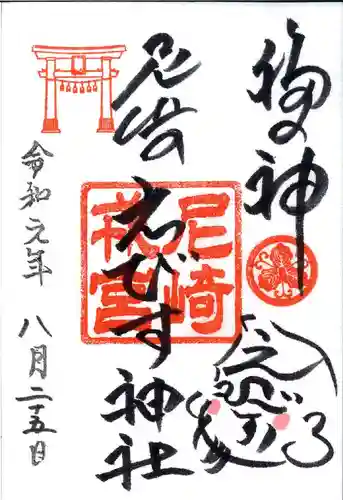 福の神
尼崎
えびす神社
尼崎
戎宮
令和元年
八月二十五日